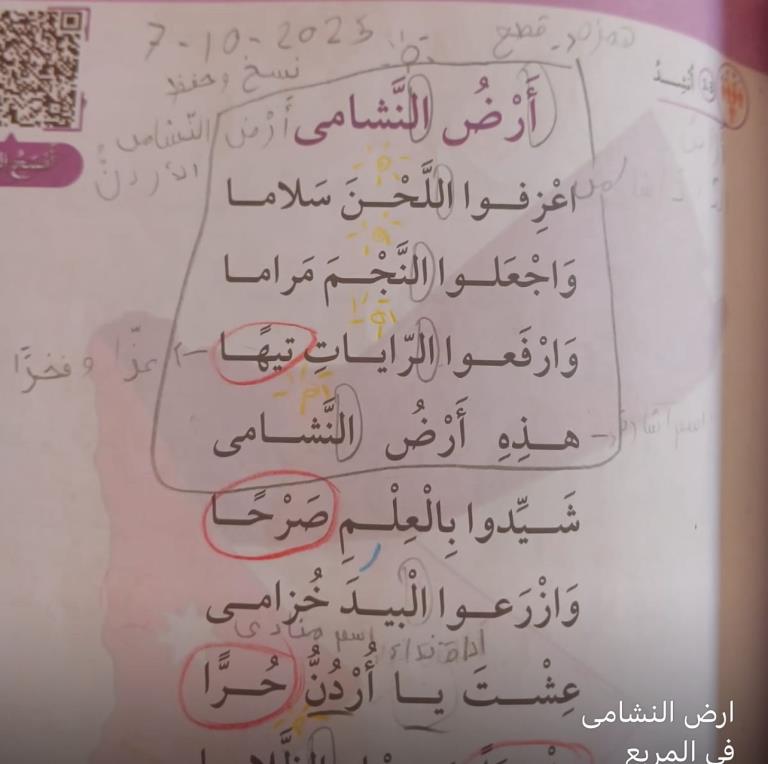 7-10-2023
همزة قطع
نسخ وحفظ
أُنْشِدُ
أَرْضُ النَّشامى
أرض النشامى
الأردنُّ
اعْزِفوا اللَّحْنَ سَلاما
وَاجْعَلوا النَّجْمَ مَراما
وَارْفَعوا الرّاياتِ تيهًا
عزًّا وفخرًا
هذِهِ أَرْضُ النَّشامى
اسم اشارة
شَيِّدوا بِالْعِلْمِ صَرْحًا
وَازْرَعوا الْبيدَ خُزامى
اداة نداء
اسم منادى
عِشْتَ يا أُرْدُنُّ حُرًّا
ارض النشامى
في المربع